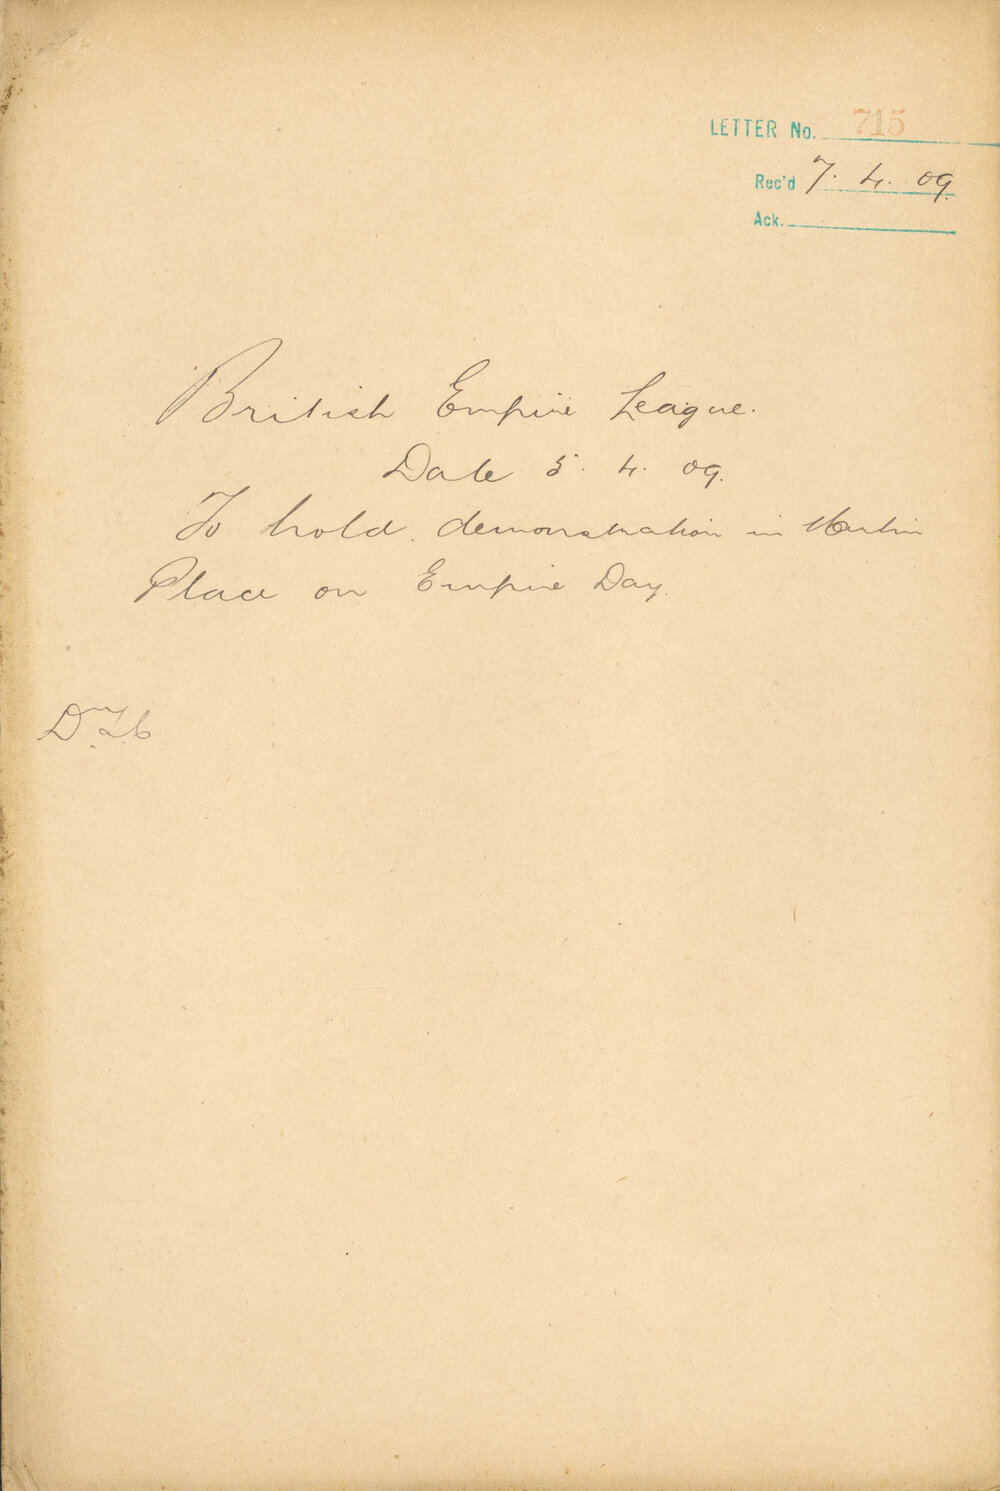 LETTER No. 715
Rec'd 7. 4. 09.
Ack.
British Empire League.
Date 5. 4. 09.
To hold demonstration in Martin
Place on Empire Day.